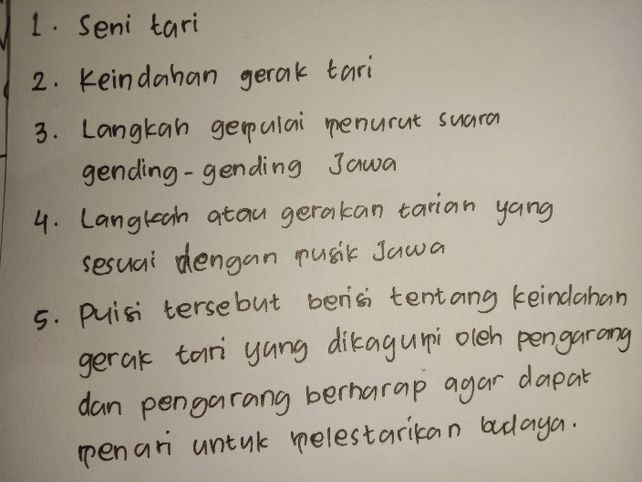 1. Seni tari
2. Keindahan gerak tari
3. Langkah gemulai menurut suara
gending-gending Jawa
4. Langkah atau gerakan tarian yang
sesuai dengan musik Jawa
5. Puisi tersebut berisi tentang keindahan
gerak tari yang dikagumi oleh pengarang
dan pengarang berharap agar dapat
menari untuk melestarikan budaya.